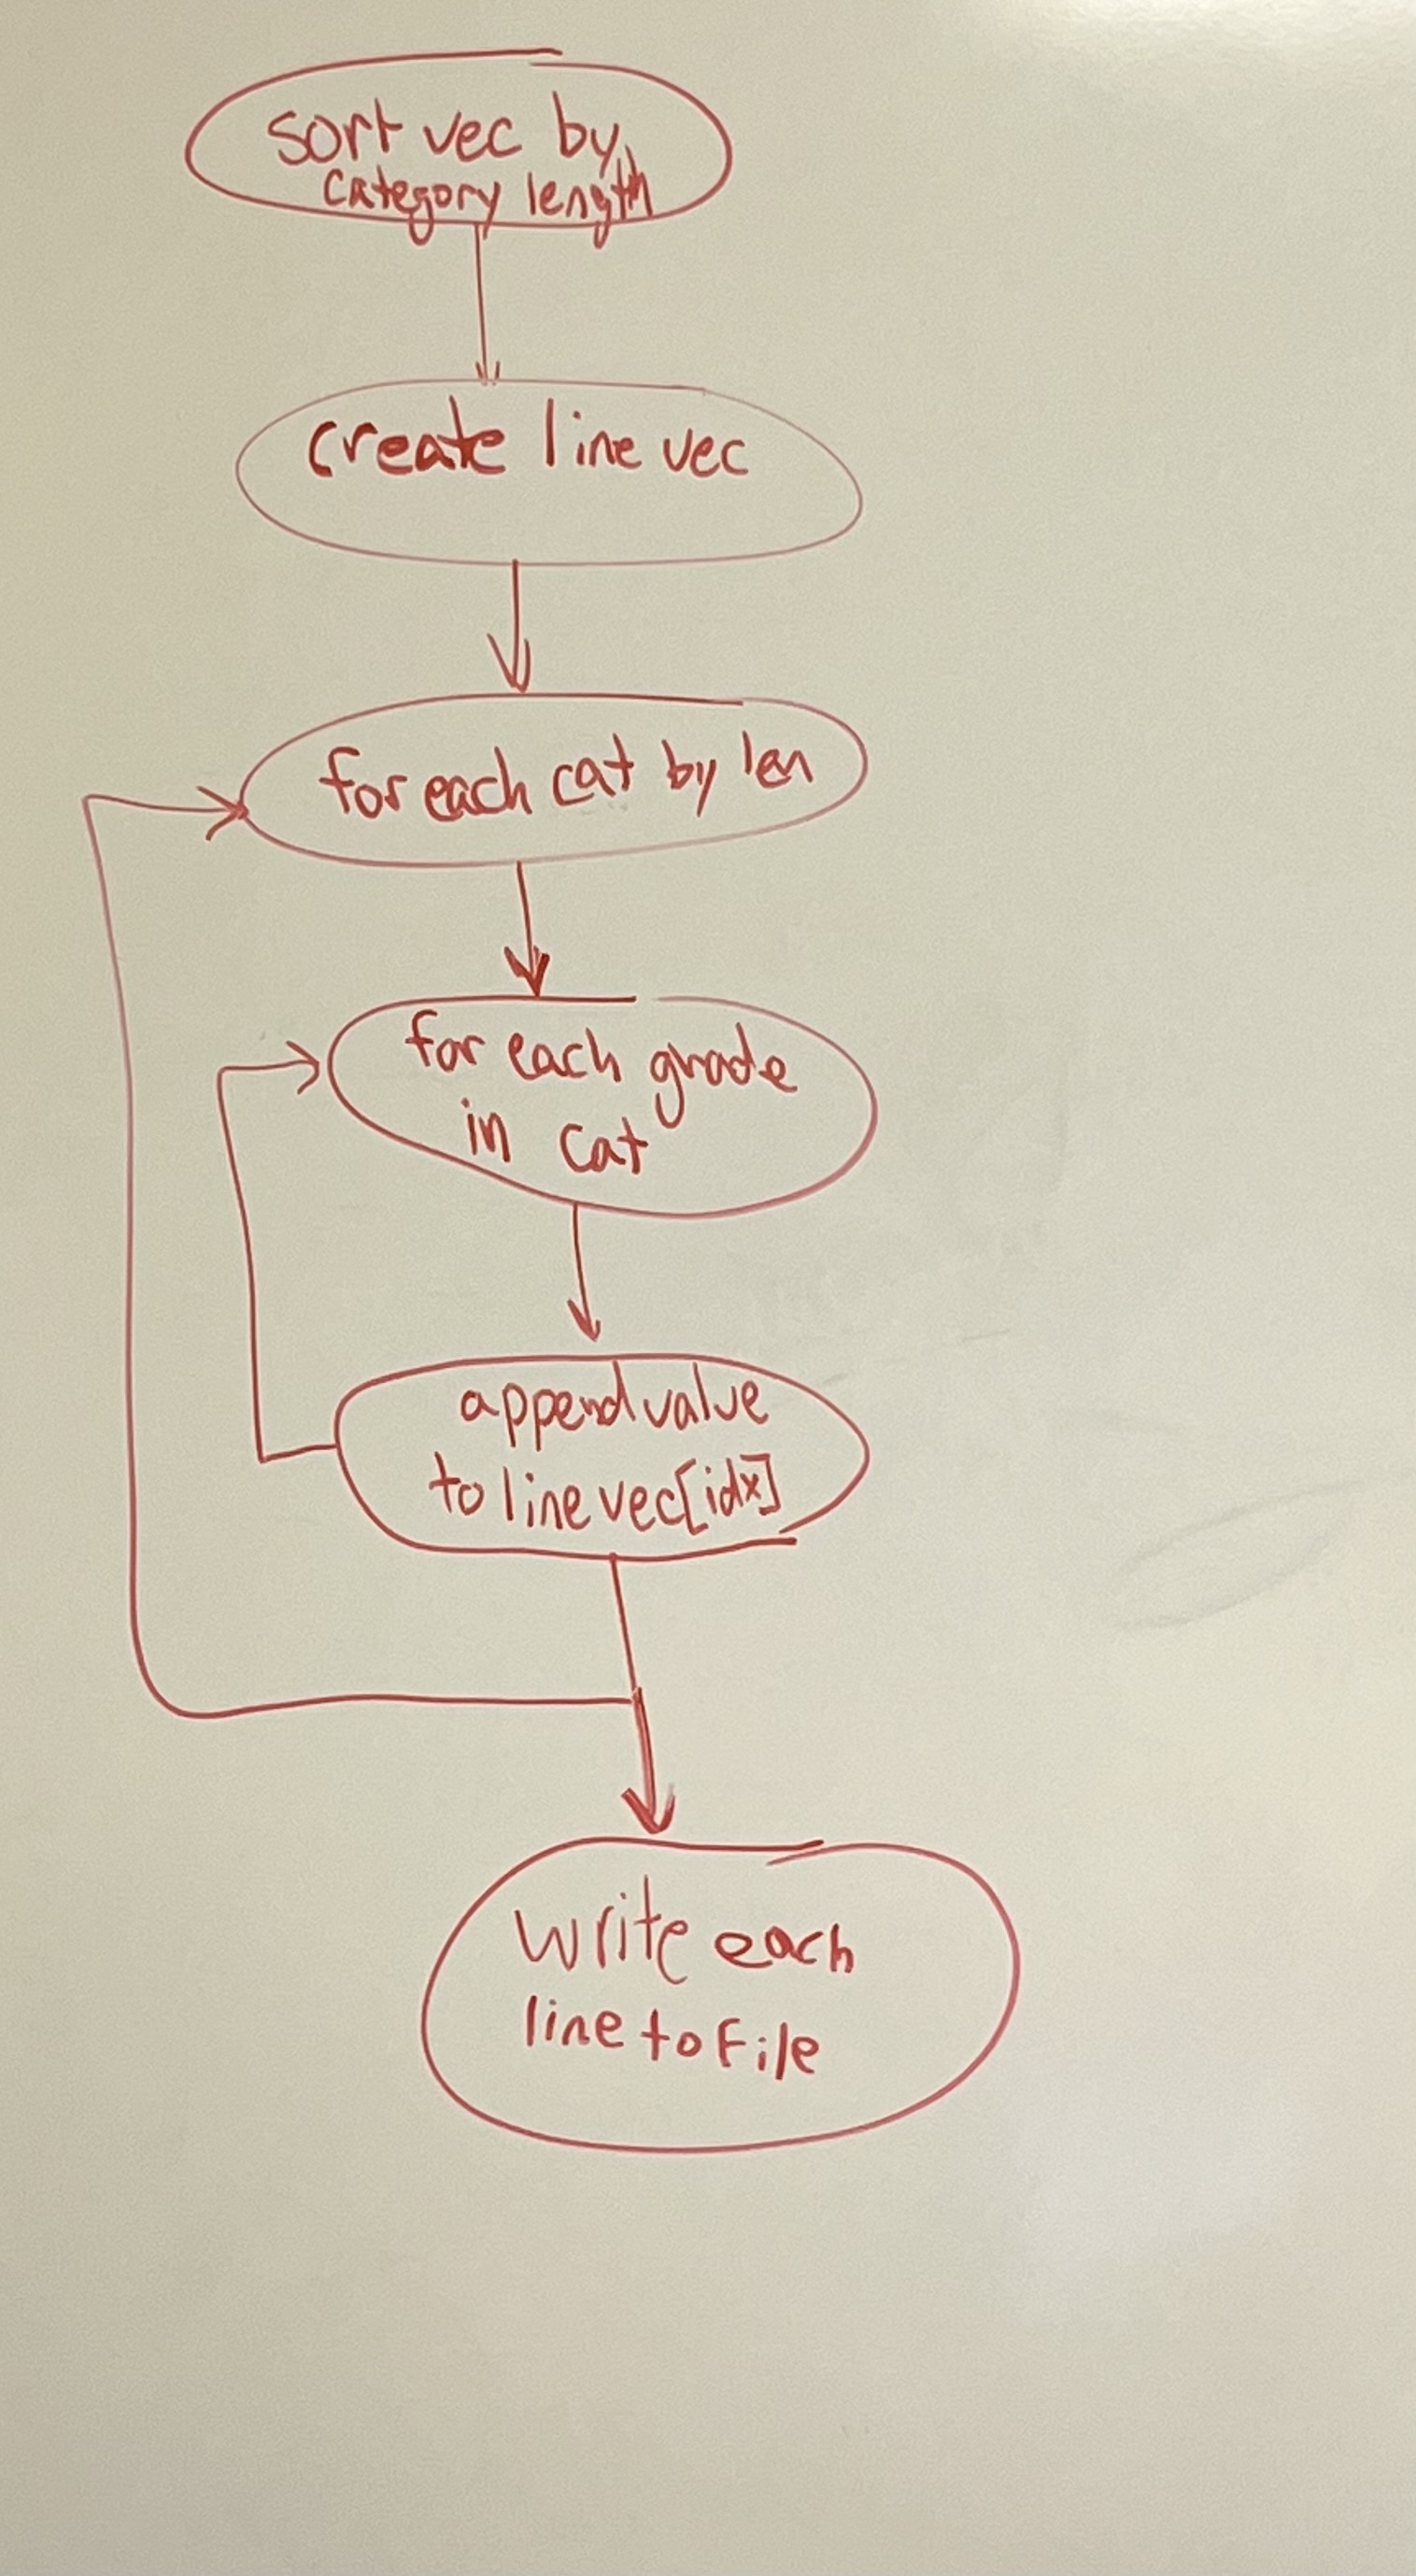 sort vec by
category length
create line vec
for each cat by len
for each grade
in cat
append value
to line vec[idx]
write each
line to File